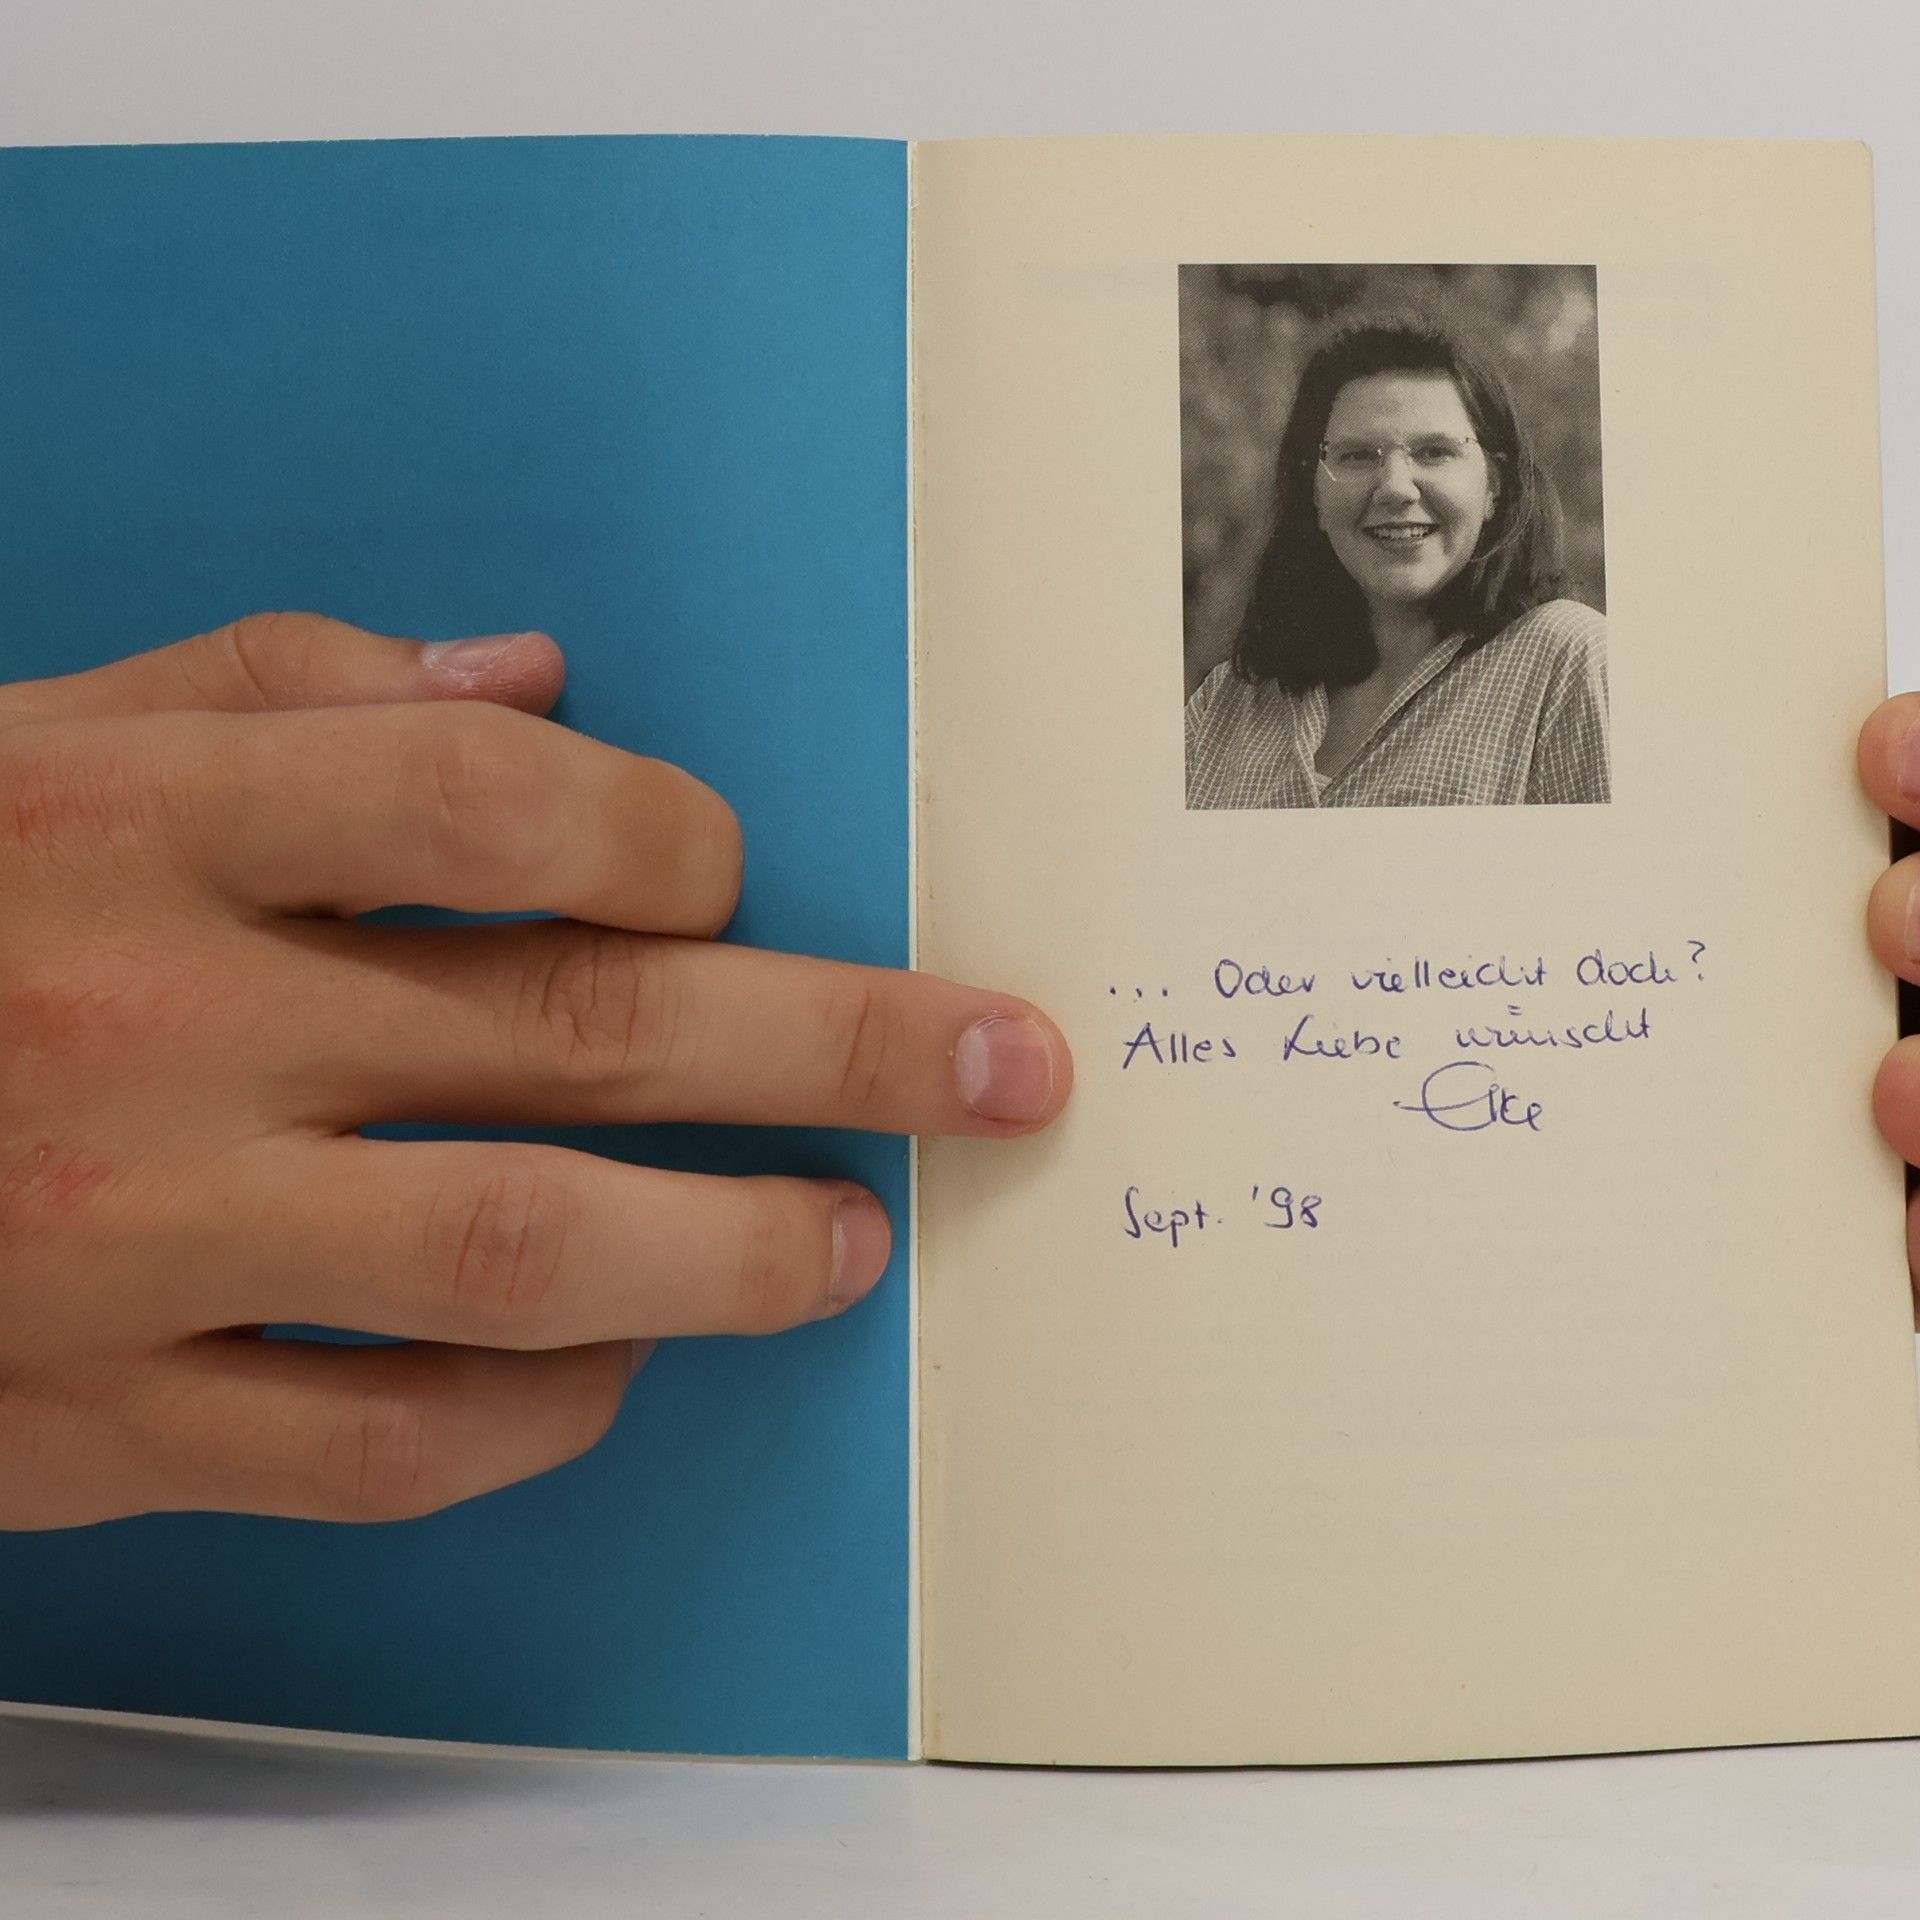 ... Oder vielleicht doch?
Alles Liebe wünscht
Elke
Sept. '98